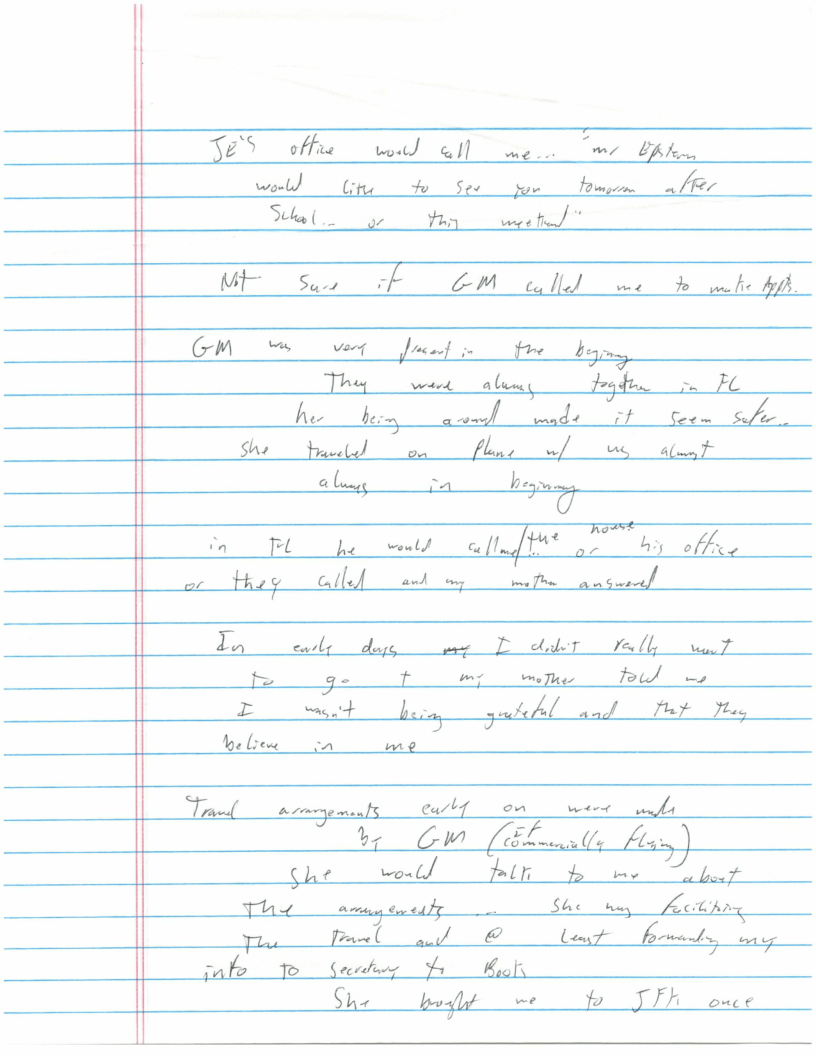 JE's office would call me... "mr Epstein
would like to see you tomorrow after
School... or this weekend"
Not sure if GM called me to make Appts.
GM was very present in the beginning
They were always together in FL
her being around made it seem safer...
She traveled on plane w/ us almost
always in beginning
in FL he would call me/the house!.. or his office
or they called and my mother answered
In early days my I didn't really want
to go + my mother told me
I wasn't being grateful and that they
believe in me
Travel arrangements early on were made
by GM (If commercially flying)
She would talk to me about
The arrangements... She was facilitating
The Travel and @ least forwarding my
info to secretary to Book
She brought me to JFK once